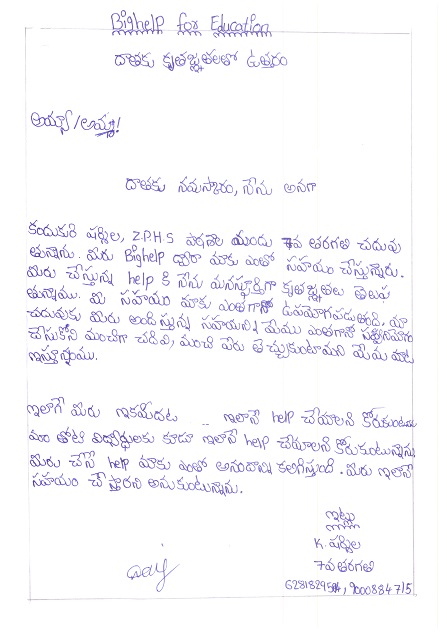 Bighelp for Education
దాతకు కృతజ్ఞతలతో ఉత్తరం
అయ్యా/అమ్మా!
దాతకు నమస్కారం, నేను అనగా
కందుకురి షర్మిల, Z.P.H.S పాఠశాల యందు 7వ తరగతి చదువు
తున్నాను. మీరు Bighelp ద్వారా మాకు ఎంతో సహాయం చేస్తున్నారు.
మీరు చేస్తున్న help కి నేను మనస్ఫూర్తిగా కృతజ్ఞతలు తెలుపు
తున్నాము. మీ సహాయం మాకు ఎంతగానో ఉపయోగపడుతుంది. మా
చదువుకు మీరు అందిస్తున్న సహయని మేము ఎంతగానో సద్వినియోగం
చేసుకోని మంచిగా చదివి, మంచి పేరు తెచ్చుకుంటామని మేము మాట
ఇస్తున్నాము.
ఇలాగే మీరు ఇకమీదట .. ఇలానే help చేయాలని కోరుకుంటూ
మా తోటి విద్యార్థులకు కూడా ఇలానే help చేయాలని కోరుకుంటున్నాను
మీరు చేసే help మాకు ఎంతో ఆనందాన్ని కలిగిస్తుంది. మీరు ఇలానే
సహాయం చేస్తారని అనుకుంటున్నాను.
ఇట్లు
K. షర్మిల
7వ తరగతి